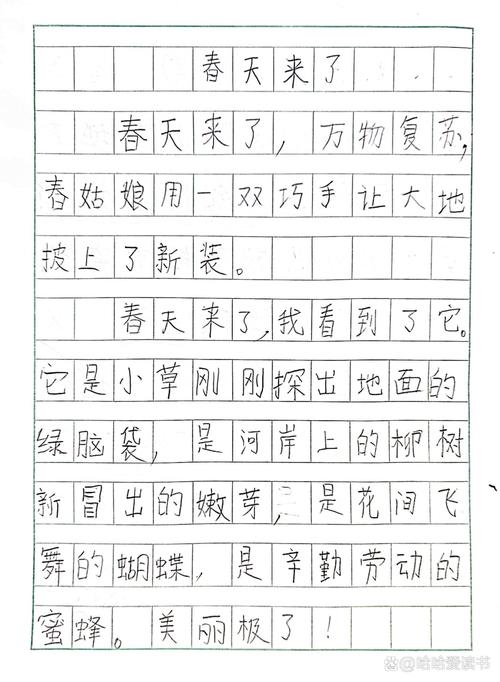 春天来了
春天来了，万物复苏，
春姑娘用一双巧手让大地
披上了新装。
春天来了，我看到了它。
它是小草刚刚探出地面的
绿脑袋，是河岸上的柳树
新冒出的嫩芽，是花间飞
舞的蝴蝶，是辛勤劳动的
蜜蜂。美丽极了！
@哈哈爱读书